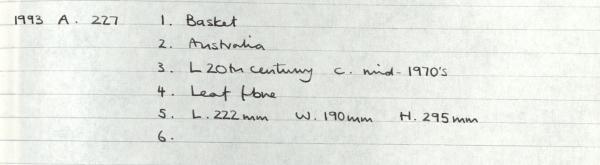 1993 A. 227 1. Basket
2. Australia
3. L 20th century c. mid-1970's
4. Leaf fibre
5. L. 222mm W. 190mm H. 295mm
6.